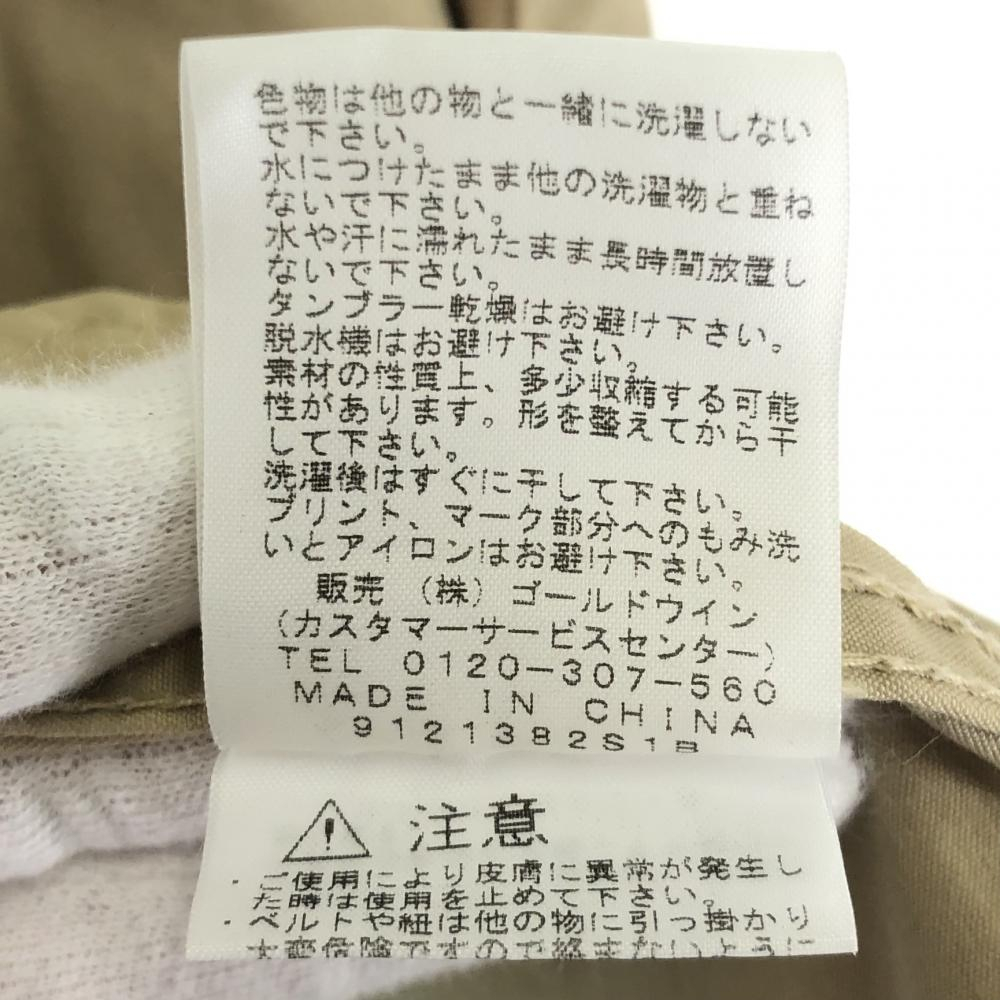 色物は他の物と一緒に洗濯しない
で下さい。
水につけたまま他の洗濯物と重ね
ないで下さい。
水や汗に濡れたまま長時間放置し
ないで下さい。
タンブラー乾燥はお避け下さい。
脱水機はお避け下さい。
素材の性質上、多少収縮する可能
性があります。形を整えてから干
して下さい。
洗濯後はすぐに干して下さい。
プリント、マーク部分へのもみ洗
いとアイロンはお避け下さい。
販売 (株) ゴールドウイン
(カスタマーサービスセンター)
TEL 0120-307-560
MADE IN CHINA
9121382S1B
注意
・ご使用により皮膚に異常が発生し
た時は使用を止めて下さい。
・ベルトや紐は他の物に引っ掛かり
大変危険ですので絡まないように